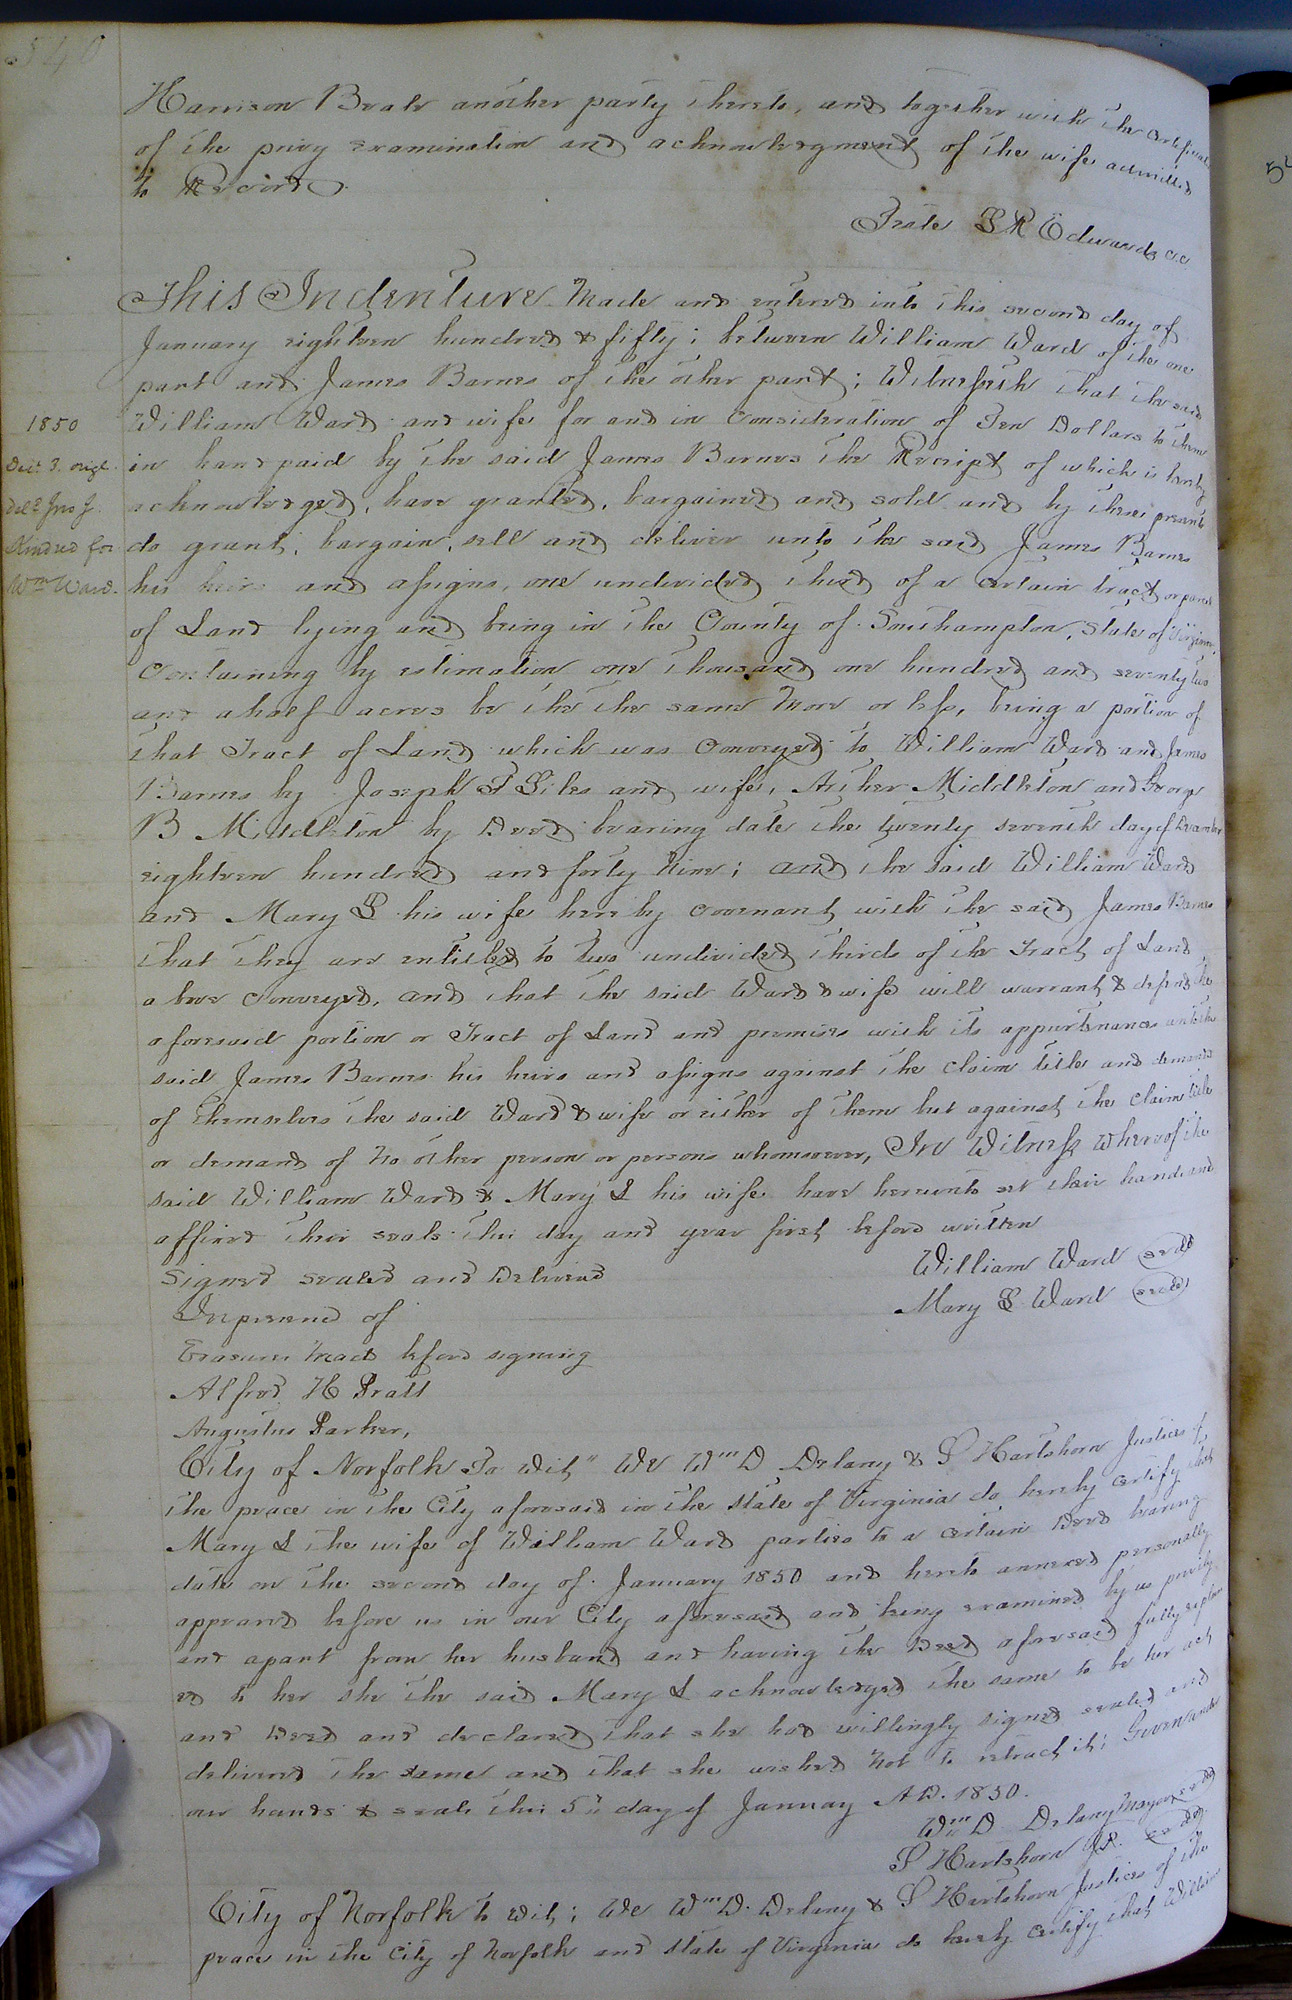 540
Harrison Beale another party thereto, and together with the certificate
of the privy examination and acknowledgment of the wife admitted
to Record.
Teste L R Edwards c.c.
This Indenture Made and entered into this second day of
January eighteen hundred & fifty; between William Ward of the one
part and James Barnes of the other part; Witnesseth that the said
William Ward and wife for and in consideration of Ten Dollars to them
in hand paid by the said James Barnes the Receipt of which is hereby
acknowledged, have granted, bargained and sold and by these presents
do grant, bargain, sell and deliver unto the said James Barnes
his heirs and assigns, one undivided third of a certain tract or parcel
of Land lying and being in the County of Southampton, State of Virginia,
Containing by estimation one thousand one hundred and seventy two
and a half acres be the the same More or less, being a portion of
that Tract of Land which was conveyed to William Ward and James
Barnes by Joseph T Giles and wife, Archer Middleton and George
B Middleton by Deed bearing date the twenty seventh day of December
eighteen hundred and forty Nine; and the said William Ward
and Mary L his wife hereby covenant with the said James Barnes
that they are entitled to two undivided thirds of the Tract of Land
above conveyed, and that the said Ward & wife will warrant & defend the
aforesaid portion or Tract of Land and premises with its appurtenances unto the
said James Barnes his heirs and assigns against the claim title and demands
of themselves the said Ward & wife or either of them but against the claim title
or demand of No other person or persons whomsoever, In Witness whereof the
said William Ward & Mary L his wife have hereunto set their hands and
affixed their seals the day and year first before written
William Ward seal
Signed sealed and Delivered
Mary L Ward seal
In presence of
Erasures Made before signing
Alfred H Pratt
Augustus Parker,
City of Norfolk To wit" We Wm D Delany & S Hartshorn Justices of
the peace in the City aforesaid in the State of Virginia do hereby certify that
Mary L the wife of William Ward parties to a certain Deed bearing
date on the second day of January 1850 and hereto annexed personally
appeared before us in our City aforesaid and being examined by us privily
and apart from her husband and having the Deed aforesaid fully explain
ed to her she the said Mary L acknowledged the same to be her act
and Deed and declared that she had willingly signed sealed and
delivered the same and that she wished Not to retract it; Given under
our hands & seals this 5th day of January A.D. 1850.
Wm D Delany Mayor seal
S Hartshorn J.P. seal
City of Norfolk to wit; We Wm D. Delany & S Hartshorn Justices of the
peace in the City of Norfolk and State of Virginia do hereby certify that William
1850
Dect 3. origl.
deld Jno J.
Kindred for
Wm Ward.